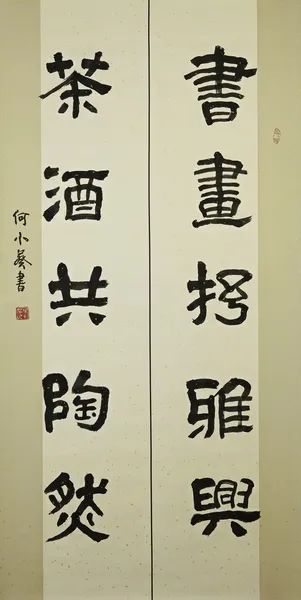 書畫抒雅興
茶酒共陶然
何小葵書